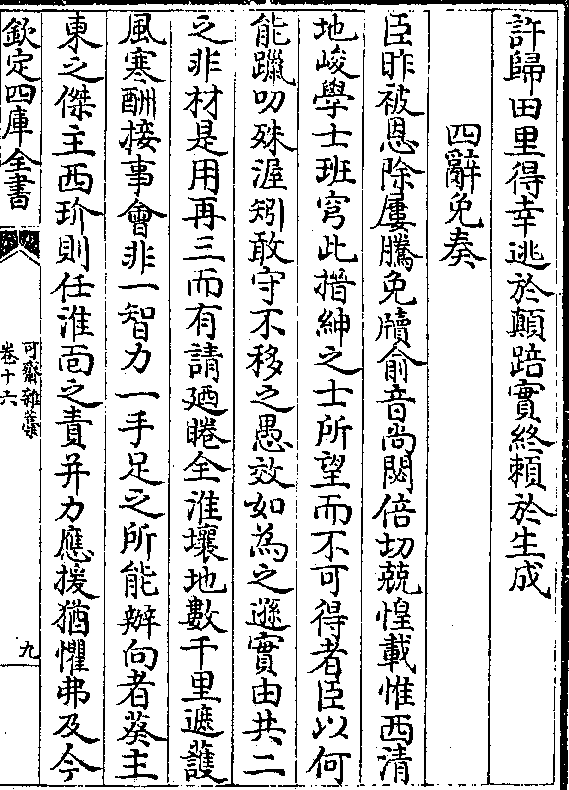 許歸田里得幸逃於顛踣實終賴於生成
四辭免奏
臣昨被恩除屢騰免牘俞音尚閟倍切兢惶載惟西清
地峻學士班穹此搢紳之士所望而不可得者臣以何
能躐叨殊渥矧敢守不移之愚效如為之遜實由共二
之非材是用再三而有請廼睠全淮壤地數千里遮護
風寒酬接事會非一智力一手足之所能辦向者葵主
東之傑主西玠則任淮靣之責并力應援猶懼弗及今
欽定四庫全書
可齋雜藁
卷十六
九